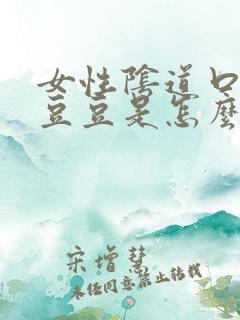 女性陰道口
豆豆是怎麼
宋增慧
未经同意禁止转载